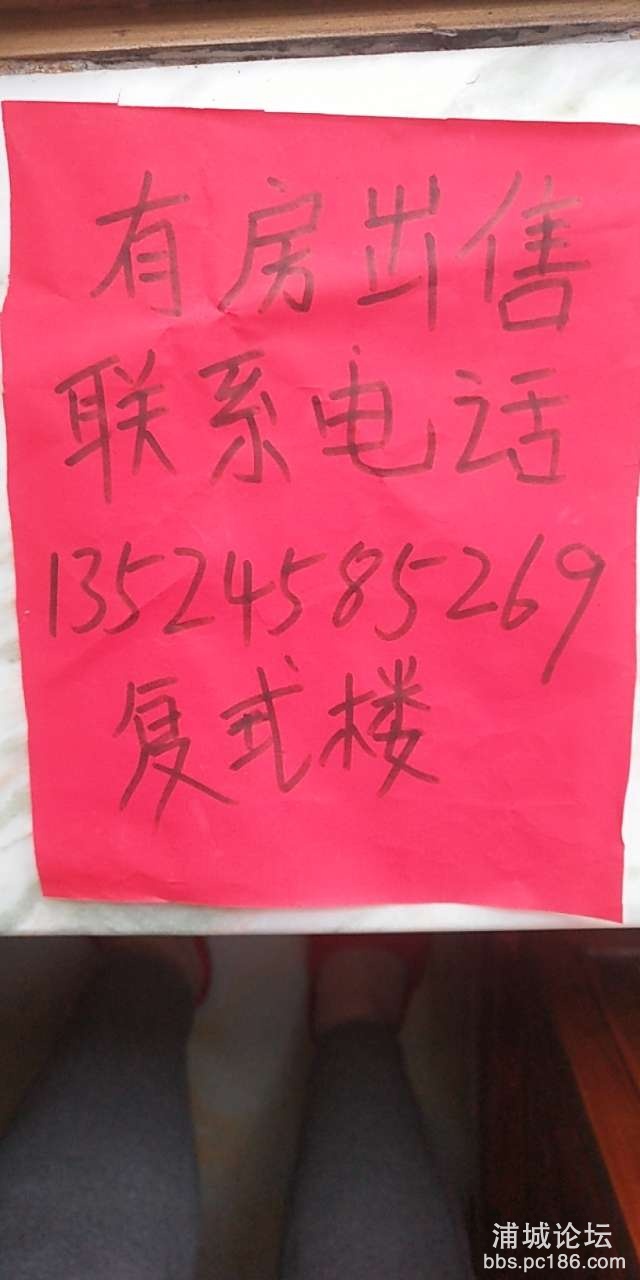 有房出售
联系电话
13524585269
复式楼
浦城论坛
bbs.pc186.com